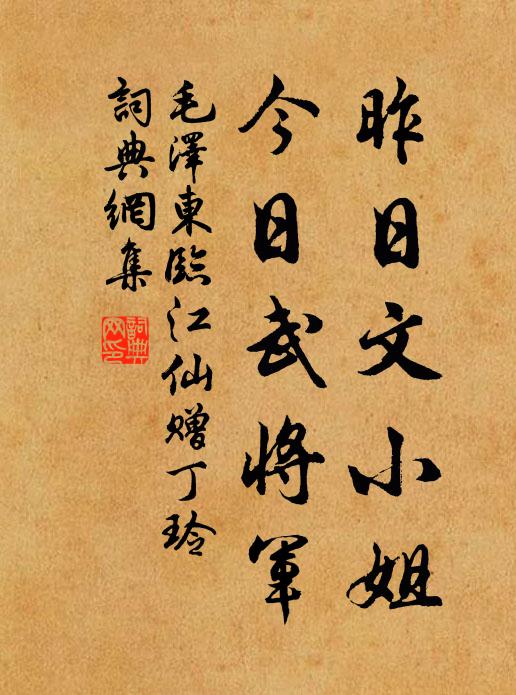 昨日文小姐
今日武将軍
毛澤東臨江仙贈丁玲
詞典網集
詞典網印